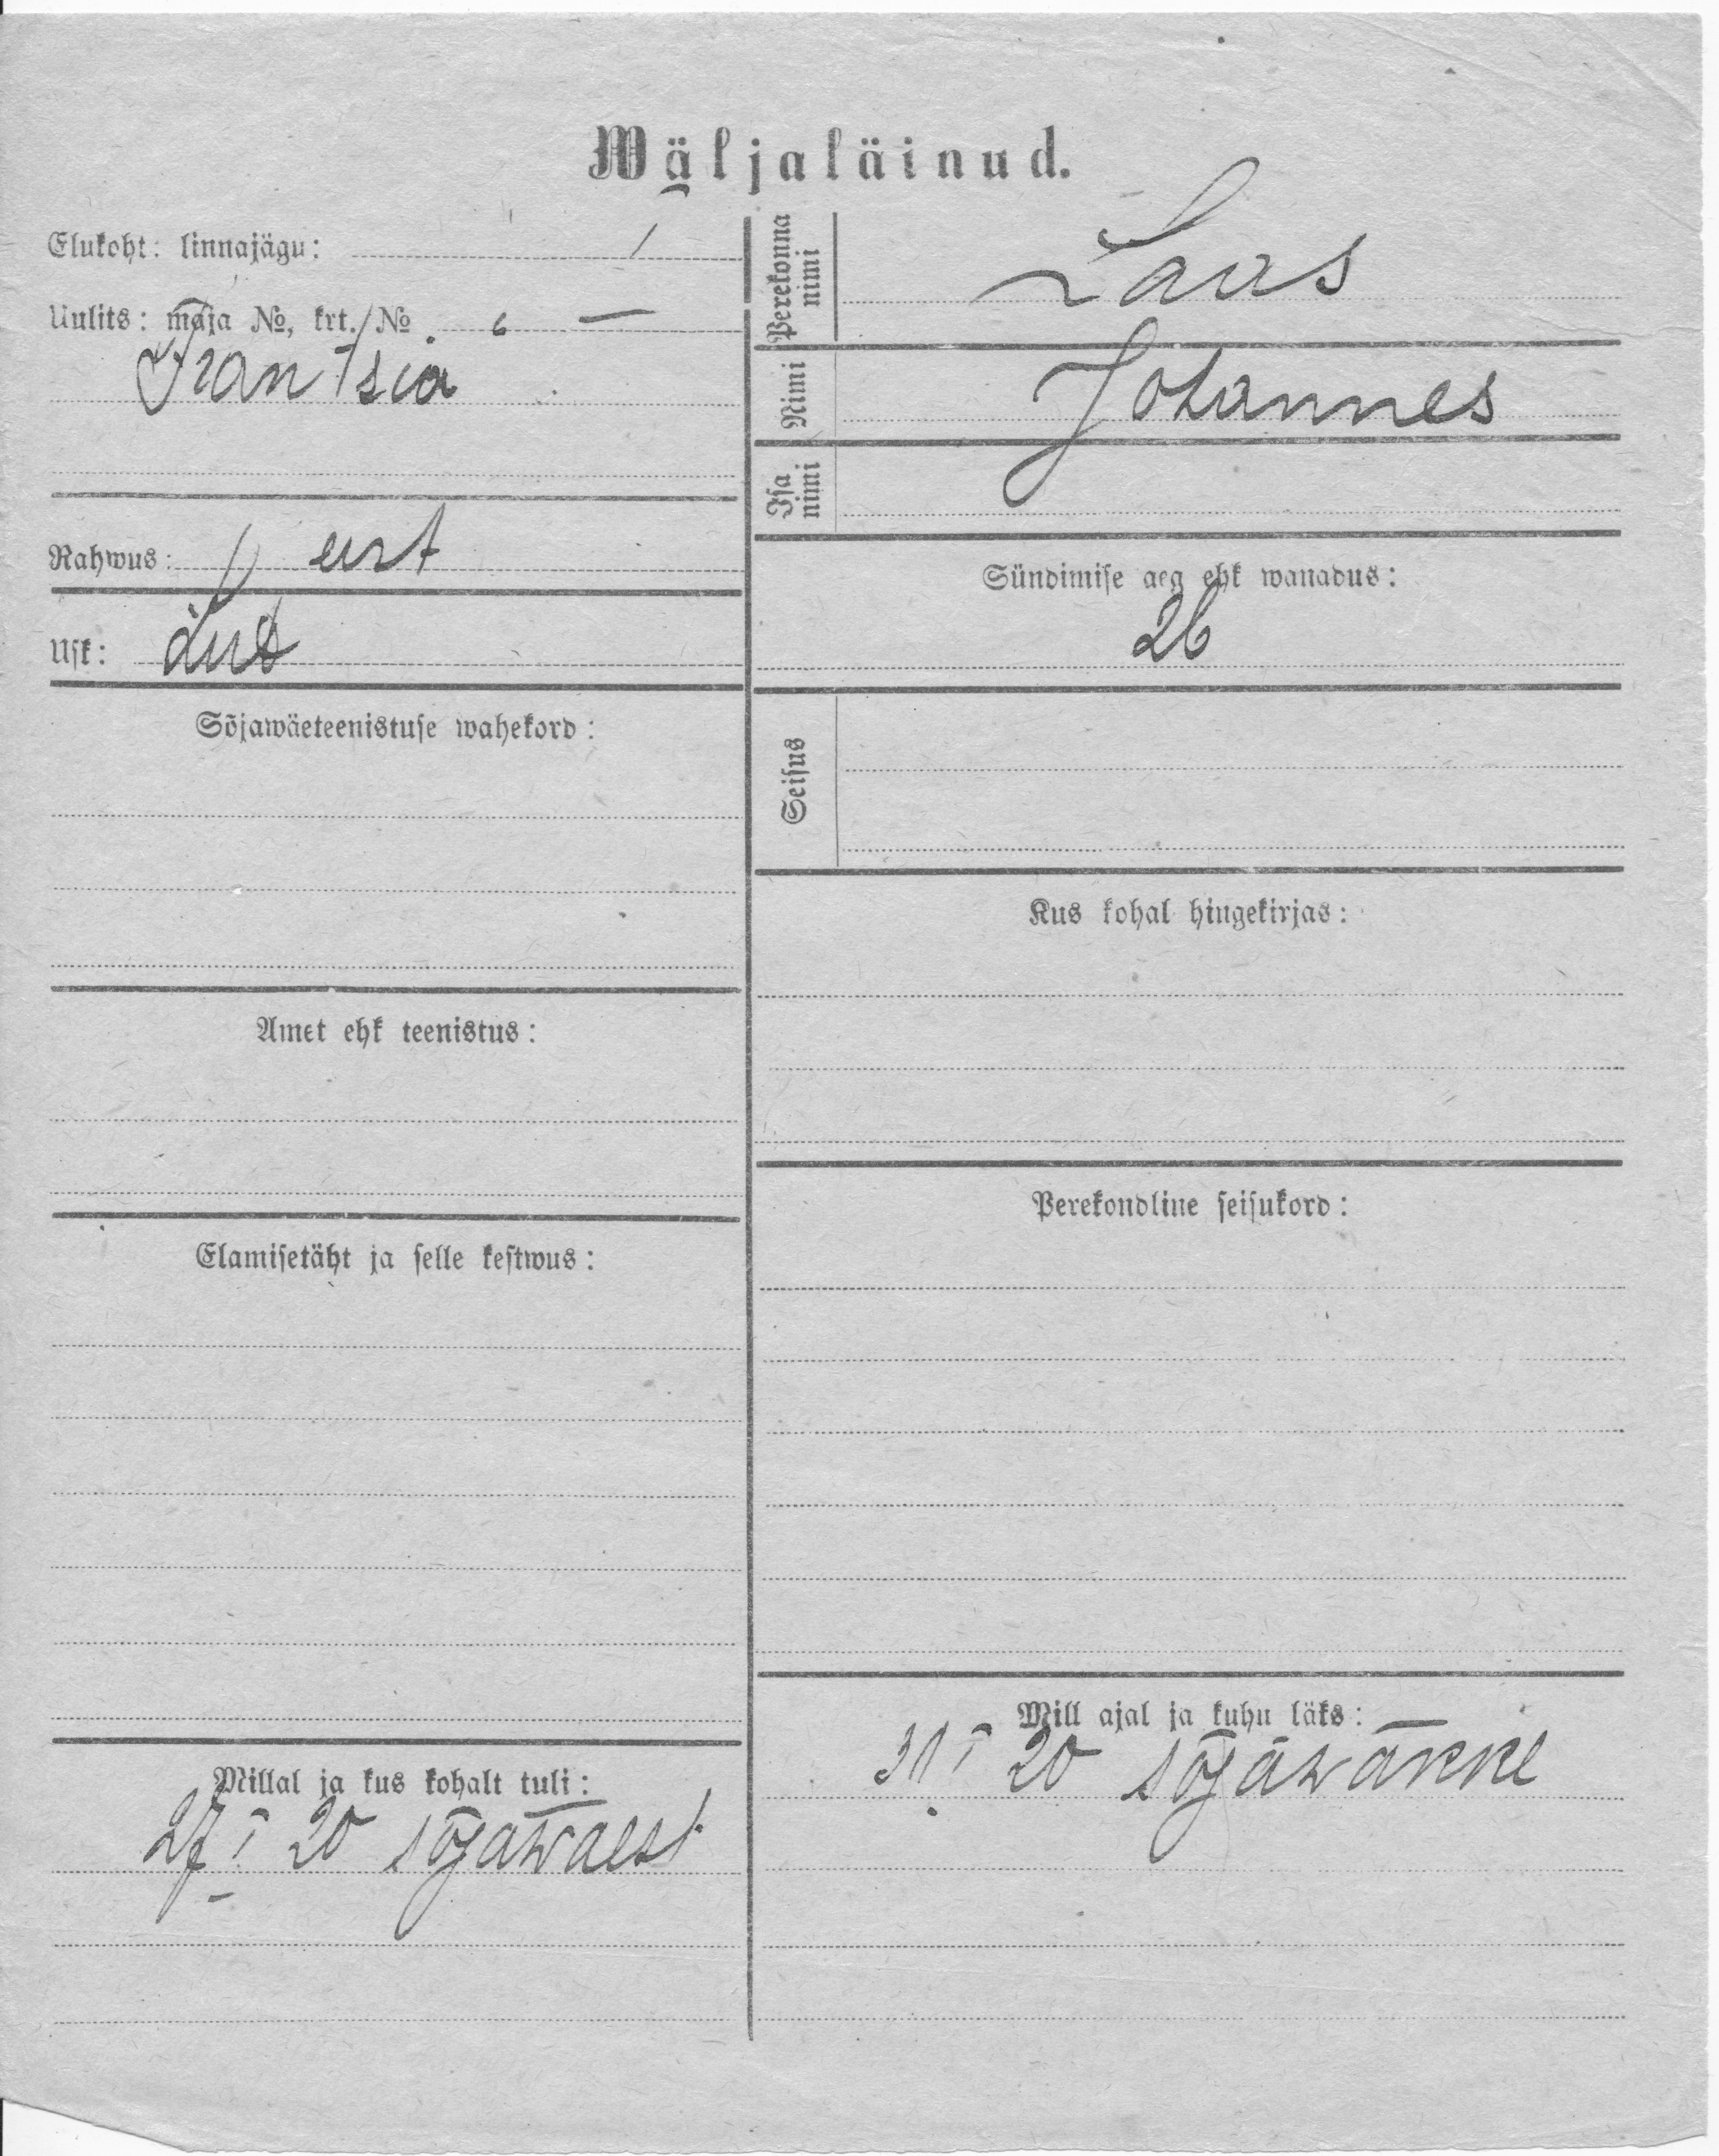 Wäljaläinud.
Elukoht: linnajägu: 1
Uulits: maja №, krt. № 6 —
Rahwus: eest
Usk: Lut
Sõjawäeteenistuse wahekord:
Amet ehk teenistus:
Elamisetäht ja selle kestwus:
Millal ja kus kohalt tuli:
27 I 20 sõjawaest
Perekonna nimi Laas
Nimi Johannes
Isa nimi
Sündimise aeg ehk wanadus:
26
Seisus
Kus kohal hingekirjas:
Perekondline seisukord:
Mill ajal ja kuhu läks:
31 I 20 sõjäwäkke